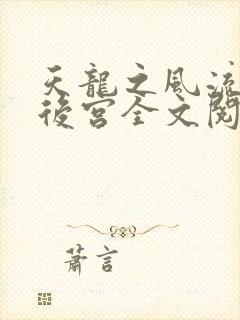 天龍之風流
後宮全文閱
蕭言